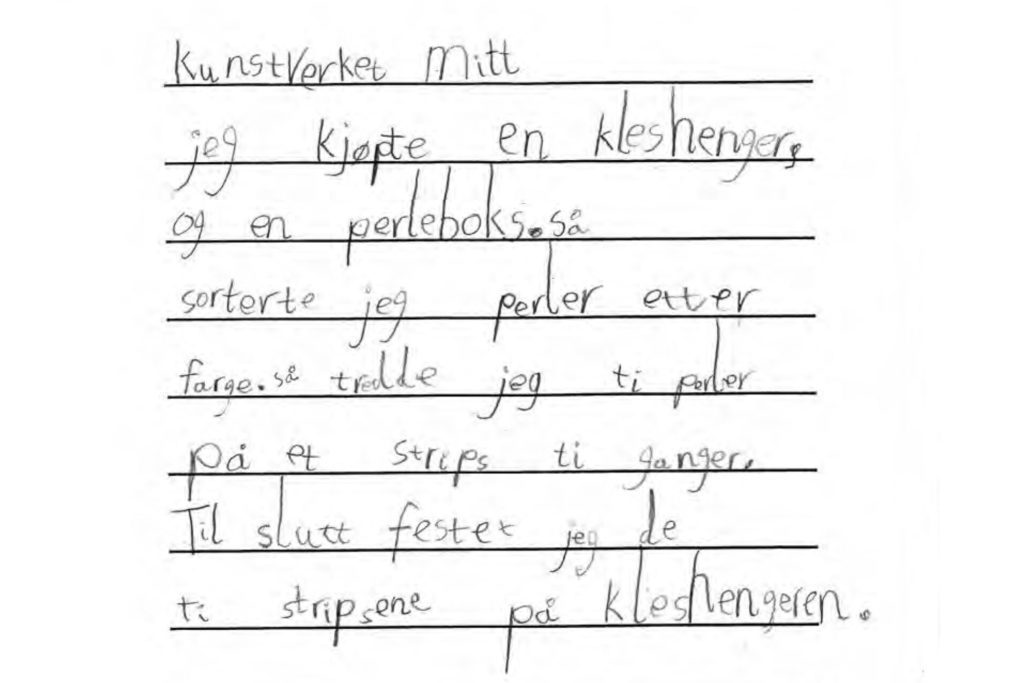 kunstverket mitt
jeg kjøpte en kleshenger,
og en perleboks. så
sorterte jeg perler etter
farge. så tredde jeg ti perler
på et strips ti ganger.
Til slutt festet jeg de
ti stripsene på kleshengeren.